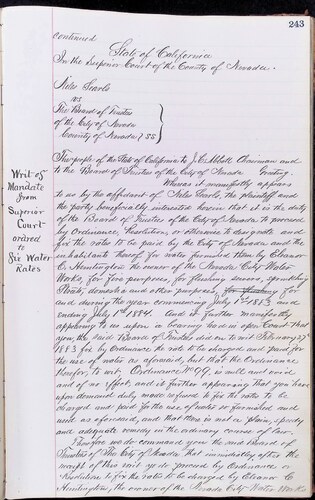 243
continued
State of California
In the Superior Court of the County of Nevada.
Niles Searls
vs
The Board of Trustees
of the City of Nevada
County of Nevada } SS
The people of the State of California to J. C. Abbott Chairman and
to the Board of Trustees of the City of Nevada Greeting.
Whereas it manifestly appears
to us by the affidavit of Niles Searls, the plaintiff and
the party beneficially interested herein that it is the duty
of the Board of Trustees of the City of Nevada to proceed
by Ordinance, Resolution or otherwise to designate and
fix the rates to be paid by the City of Nevada and the
inhabitants thereof for water furnished them by Eleanor
C. Huntington the owner of the Nevada City Water
Works, for fire purposes, for flushing sewers, sprinkling
Streets, domestic and other purposes for
and during the year commencing July 1st 1893 and
ending July 1st 1894. And it further manifestly
appearing to us upon a hearing had in open Court that
you, the said Board of Trustees did on to wit February 27
1893 fix by Ordinance the rate to be charged and paid for
the use of water as aforesaid, but that the Ordinance
therefor, to wit, Ordinance No 99, is null and void
and of no effect and it further appearing that you have
upon demand duly made refused to fix the rates to be
charged and paid for the use of water so furnished and
used as aforesaid, and that there is not a plain, speedy
and adequate remedy in the ordinary course of law.
Therefore we do command you the said Board of
Trustees of The City of Nevada that immediately after the
receipt of this writ you do proceed by Ordinance or
Resolution to fix the rates to be charged by Eleanor C.
Huntington, the owner of the Nevada City Water Works
Writ of
Mandate
from
Superior
Court
ordered
to
Fix Water
Rates